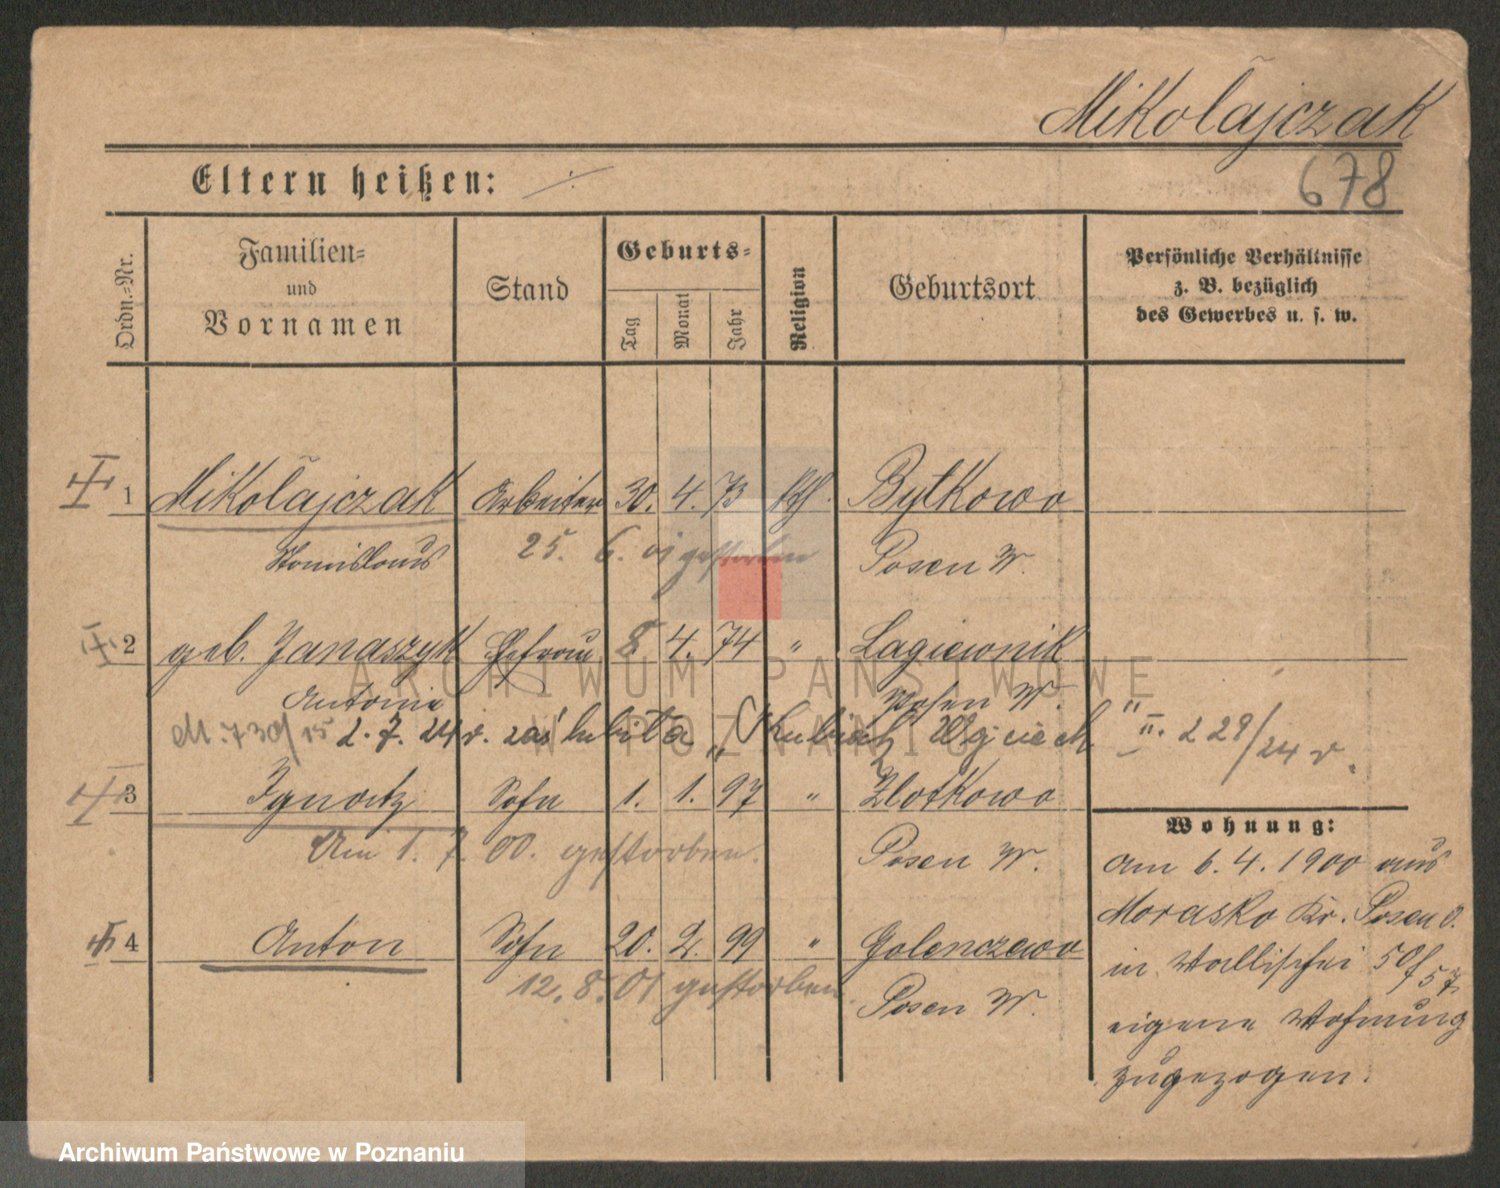 Mikolajczak
678
Eltern heißen: ·/·
Ordn.-Nr.
Familien-
und
Vornamen
Stand
Geburts-
Tag
Monat
Jahr
Religion
Geburtsort
Persönliche Verhältnisse
z. B. bezüglich
des Gewerbes u. s. w.
1 Mikolajczak Arbeiter 30. 4. 73 kth. Bytkowo
Stanislaus 25. 6. 01 gestorben Posen W.
2 geb. Janaszyk Ehefrau 8. 4. 74 " Lagiewnik
Antonie Posen W.
M. 730/15 2. 7. 24 r. zaślubiła „Kubiak Wojciech" II. 229/24 r.
3 Ignatz Sohn 1. 1. 97 " Zlotkowo
Am 1. 7. 00. gestorben. Posen W.
4 Anton Sohn 20. 2. 99 " Golenczewo
12. 8. 01 gestorben Posen W.
Wohnung:
am 6. 4. 1900 aus
Morasko Kr. Posen O.
in Wallischei 50/57
eigene Wohnung
zugezogen.
ARCHIWUM PAŃSTWOWE
W POZNANIU
Archiwum Państwowe w Poznaniu